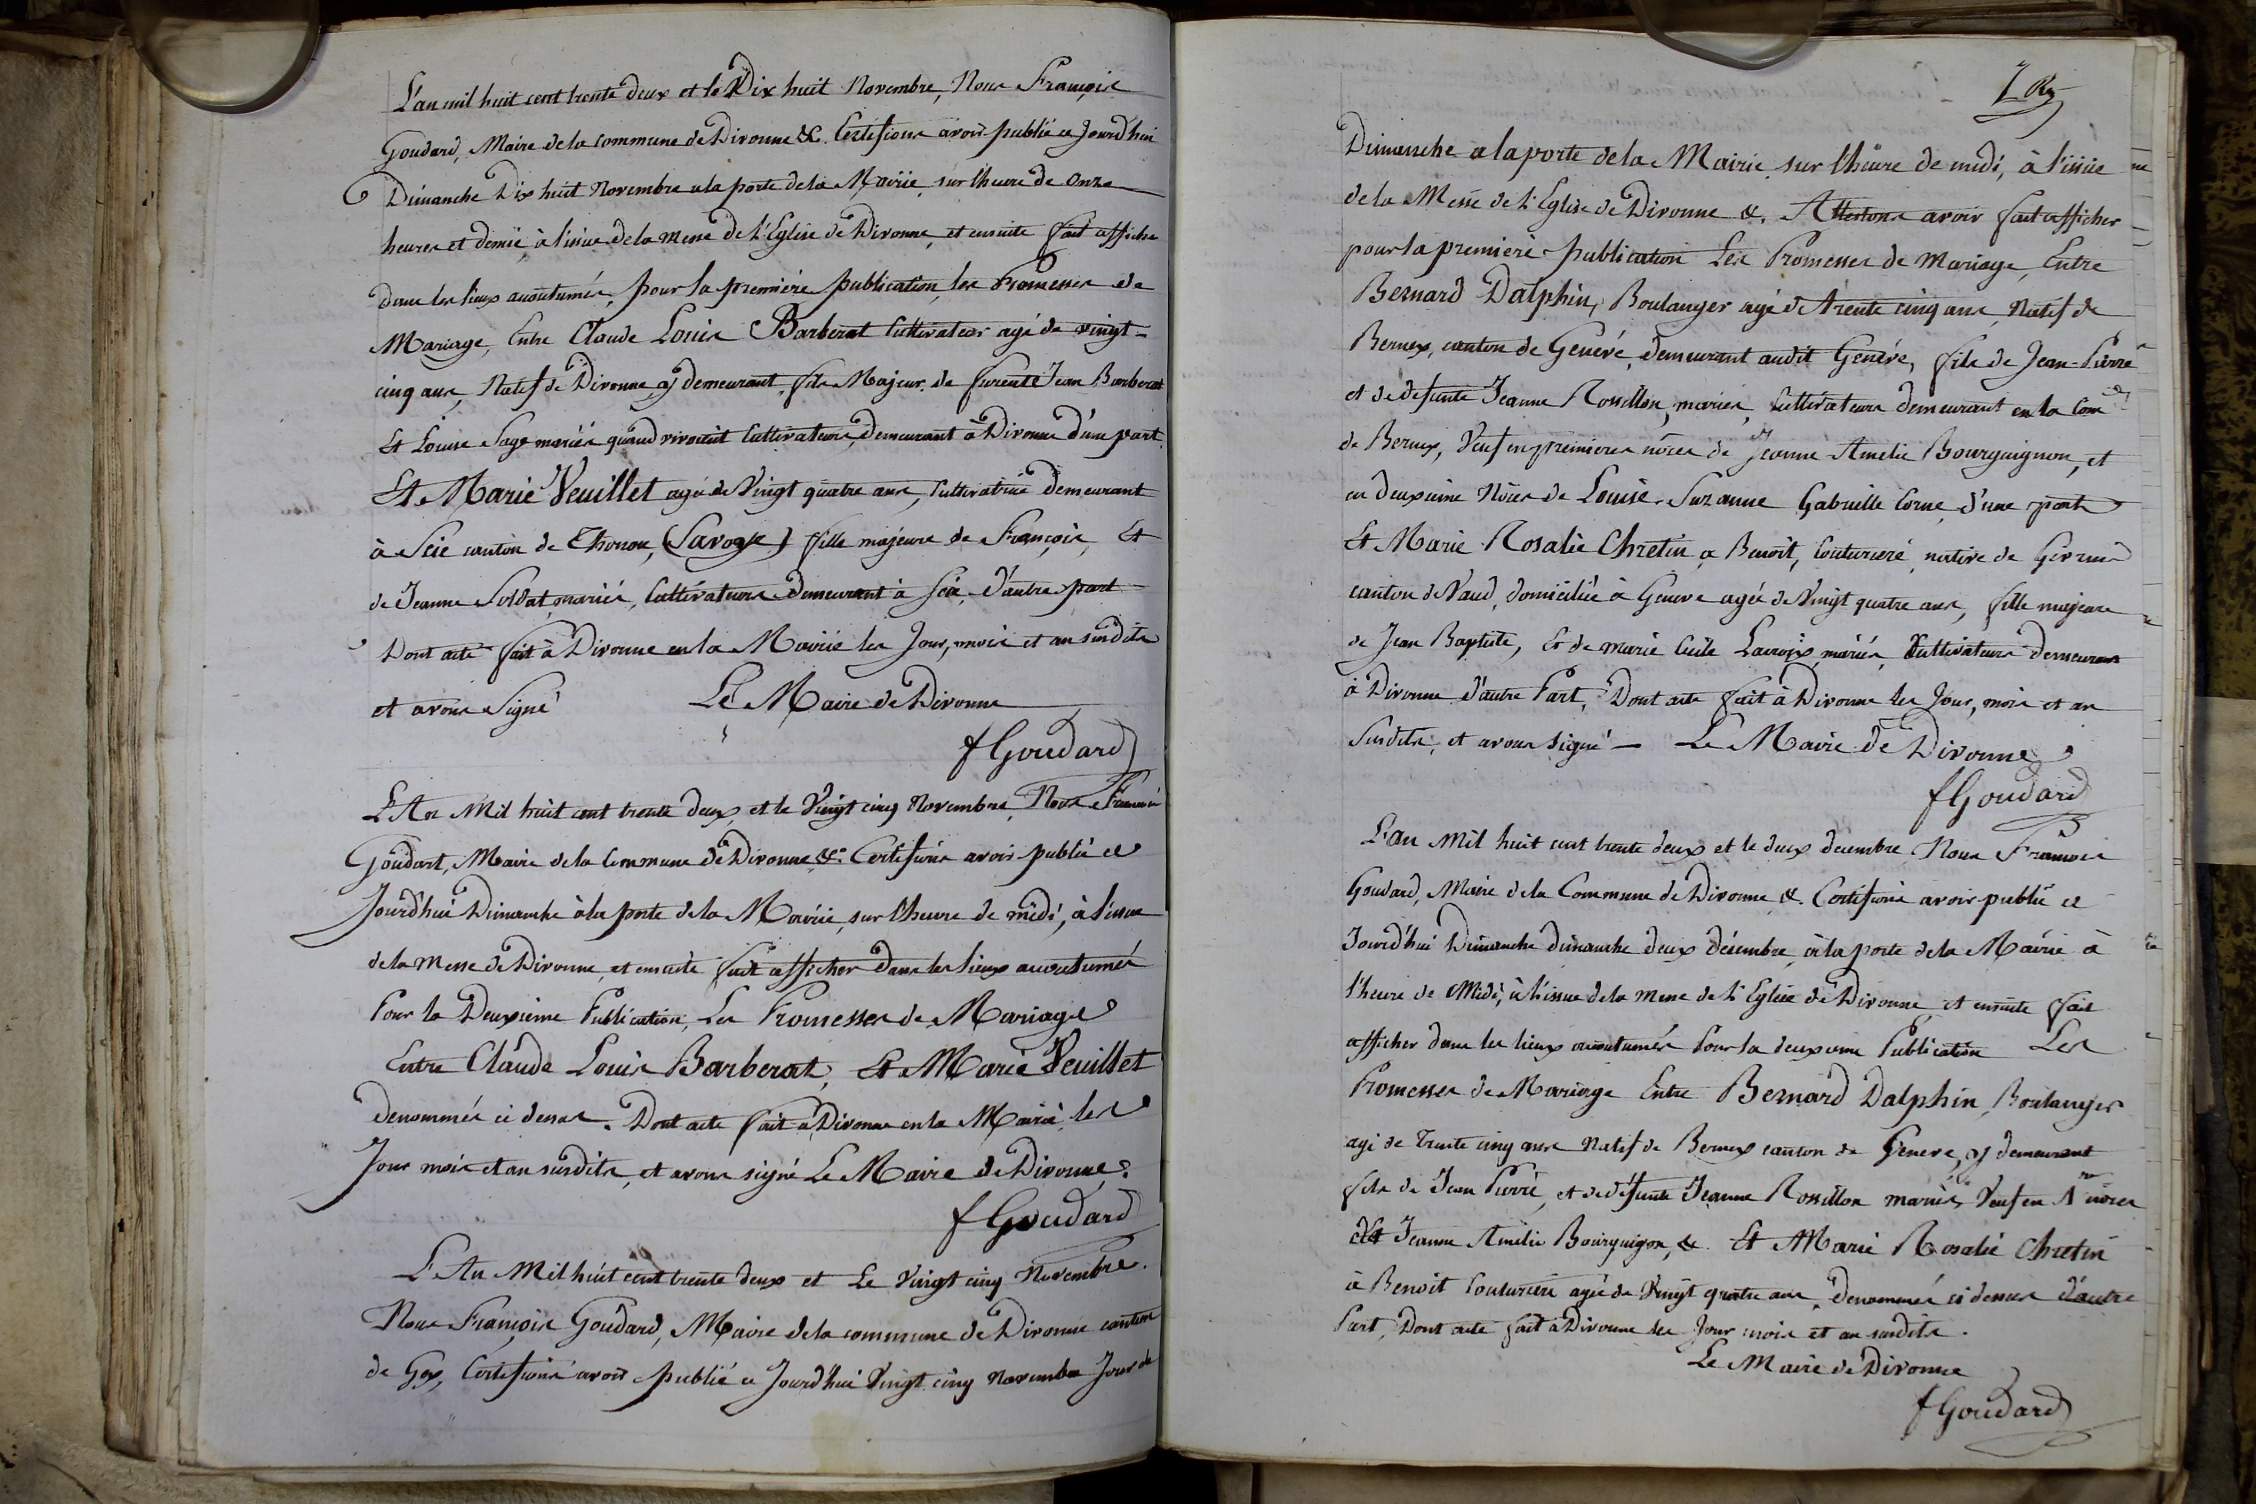 L'an mil huit cent trente deux et le Dix huit Novembre, Nous François
Goudard, Maire de la commune de Divonne &c. Certifions avoir publié ce Jourd'hui
Dimanche Dix huit Novembre a la porte de la Mairie, sur l'heure de Onze
heures et demie, à l'issue de la messe de l'Eglise de Divonne, et ensuite fait affiche
dans les lieux acoutumés, pour la première publication, les Promesses de
Mariage, Entre Claude Louis Barberat Cultivateur agé de vingt-
cinq ans, Natif de Divonne y demeurant, fils Majeur de Jean Barberat
Et Louise Sage mariés quand vivoient Cultivateurs, demeurant à Divonne d'une part.
Et Marie Veuillet agée de Vingt quatre ans, Cultivatrice demeurant
à Scie canton de Thonon, (Savoye) fille majeure de François, Et
de Jeanne Soldat, mariés, Cultivateurs demeurant à Scie, d'autre part
Dont acte fait à Divonne en la Mairie les Jour, mois et an susdits
et avons Signé Le Maire de Divonne
f Goudard
L'An Mil huit cent trente deux, et le Vingt cinq Novembre, Nous François
Goudart, Maire de la Commune de Divonne &c. Certifions avoir publié ce
Jourd'hui Dimanche à la porte de la Mairie, sur l'heure de midi, à l'issue
de la Messe de Divonne, et ensuite fait afficher dans les lieux accoutumés
Pour la Deuxieme Publication, Les Promesses de Mariage
Entre Claude Louis Barberat, Et Marie Veuillet
denommés ci dessus. Dont acte fait à Divonne en la Mairie, les
Jour mois et an susdits, et avons signé Le Maire de Divonne.
f Goudard
L'An Mil huit cent trente deux et Le Vingt cinq Novembre.
Nous François Goudard, Maire de la commune de Divonne canton
de Gex, Certifions avoir publié ce Jourd'hui Vingt cinq novembre Jour de
Dimanche a la porte de la Mairie, sur l'heure de midi, à l'issue
de la Messe de l'Eglise de Divonne &. Attestons avoir fait afficher
pour la premiere publication Les Promesses de Mariage, Entre
Bernard Dalphin, Boulanger agé de trente cinq ans, Natif de
Bernex, canton de Genéve, demeurant audit Genéve, fils de Jean-Pierre
et de defunte Jeanne Rossillon, mariés, Cultivateurs demeurant en la Com
de Bernex, Veuf en premieres nôces de Jeanne Amelie Bourguignon, et
en deuxieme Nôces de Louise Suzanne Gabrielle Corne, d'une part
Et Marie Rosalie Chretin, a Benoit, Couturiere, native de
canton de Vaud, domiciliée à Geneve agée de Vingt quatre ans, fille majeure
de Jean Baptiste, Et de marie Cecile Lacroix, mariés, Cultivateurs demeurans
à Divonne d'autre Part, Dont acte fait à Divonne les Jour, mois et an
Susdits, et avons signé - Le Maire de Divonne
f Goudard
L'an Mil huit cent trente deux et le deux decembre. Nous François
Goudard, Maire de la Commune de Divonne &. Certifions avoir publié ce
Jourd'hui Dimanche dimanche deux décembre, à la porte de la Mairie à
l'heure de Midi, à l'issue de la messe de l'Eglise de Divonne, et ensuite fait
afficher dans les lieux accoutumés Pour la deuxieme Publication Les
Promesses de Mariage Entre Bernard Dalphin, Boulanger
agé de Trente cinq ans Natif de Bernex canton de Geneve, y demeurant
fils de Jean Pierre, et de défunte Jeanne Rossillon mariés, Veuf en 1res nôces
de Jeanne Amélie Bourguignon, &. Et Marie Rosalie Chretin
à Benoit Couturiere agée de Vingt quatre ans, denommés ci dessus d'autre
Part, Dont acte fait à Divonne les Jour mois et an susdits.
Le Maire de Divonne
f Goudard